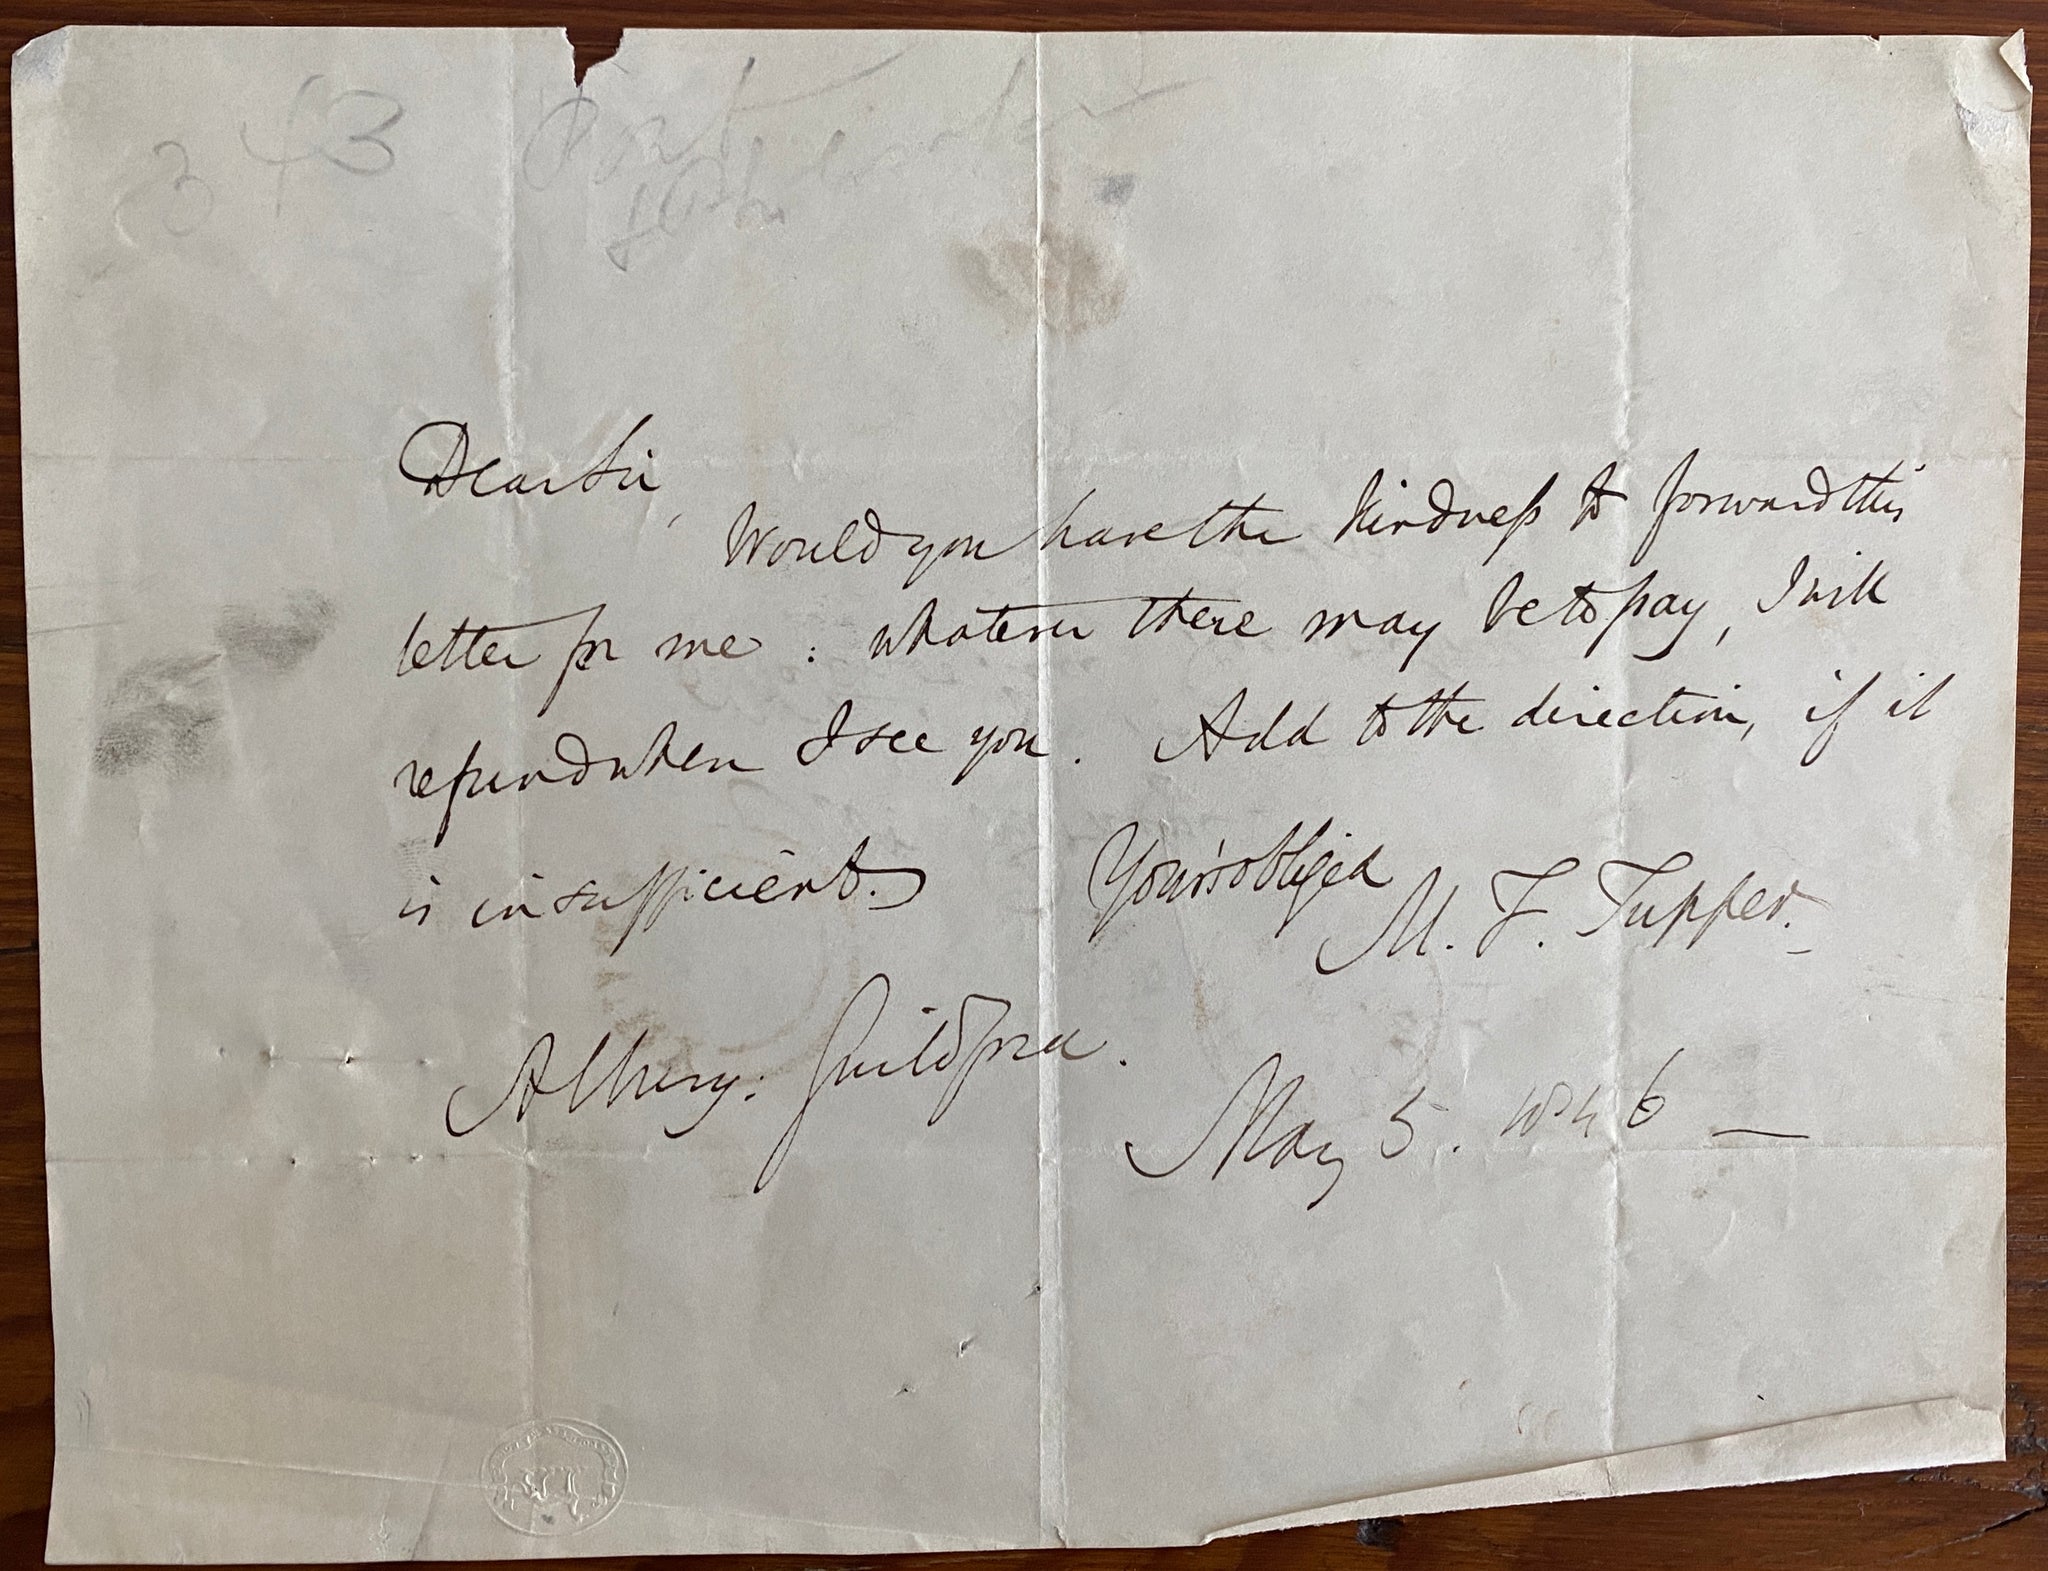 343
Dear Sir,
Would you have the kindness to forward this
letter for me : whatever there may be to pay, I will
refund when I see you. Add to the direction, if it
is insufficient.
Your's obliged
M. F. Tupper.
Albury. Guildford.
May 5. 1846 —